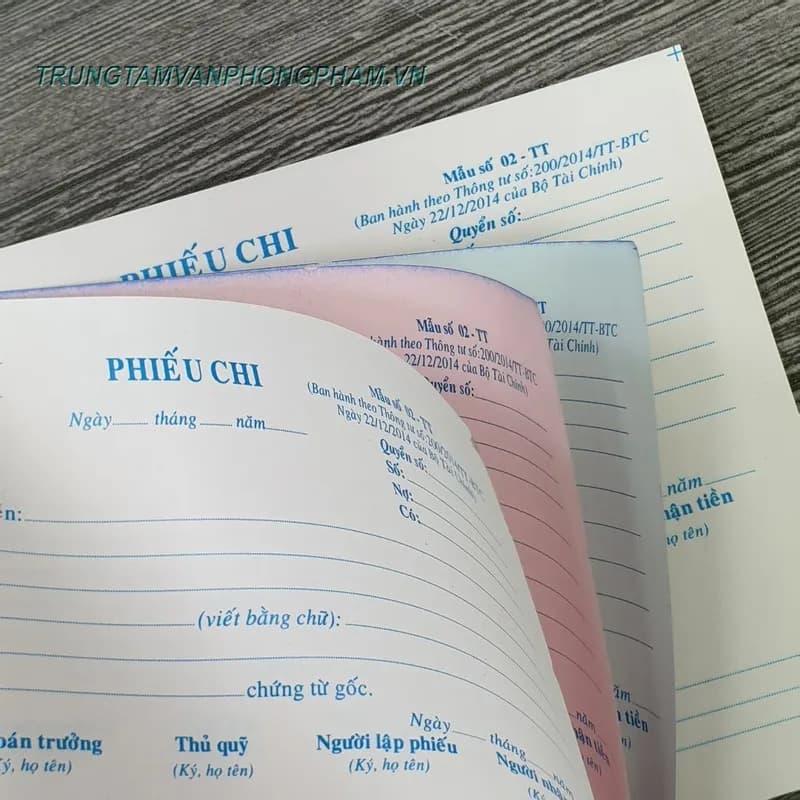 TRUNGTAMVANPHONGPHAM.VN
Mẫu số 02 - TT
(Ban hành theo Thông tư số:200/2014/TT-BTC
Ngày 22/12/2014 của Bộ Tài Chính)
Quyển số:
PHIẾU CHI
năm
(Ký, họ tên)
TT
20/2014/TT-BTC
Tài Chính)
Mẫu số 02 - TT
hành theo Thông tư số:200/2014/TT-BTC
22/12/2014 của Bộ Tài Chính)
Quyển số:
PHIẾU CHI
Ngày tháng năm
Mẫu số 02 - TT
(Ban hành theo Thông tư số:200/2014/TT-BTC
Ngày 22/12/2014 của Bộ Tài Chính)
Quyển số:
Số:
Nợ:
Có:
(viết bằng chữ):
chứng từ gốc.
Ngày tháng năm
trưởng Thủ quỹ Người lập phiếu Người
họ tên) (Ký, họ tên) (Ký, họ tên) (Ký, họ tên)
năm
tiền
tiền